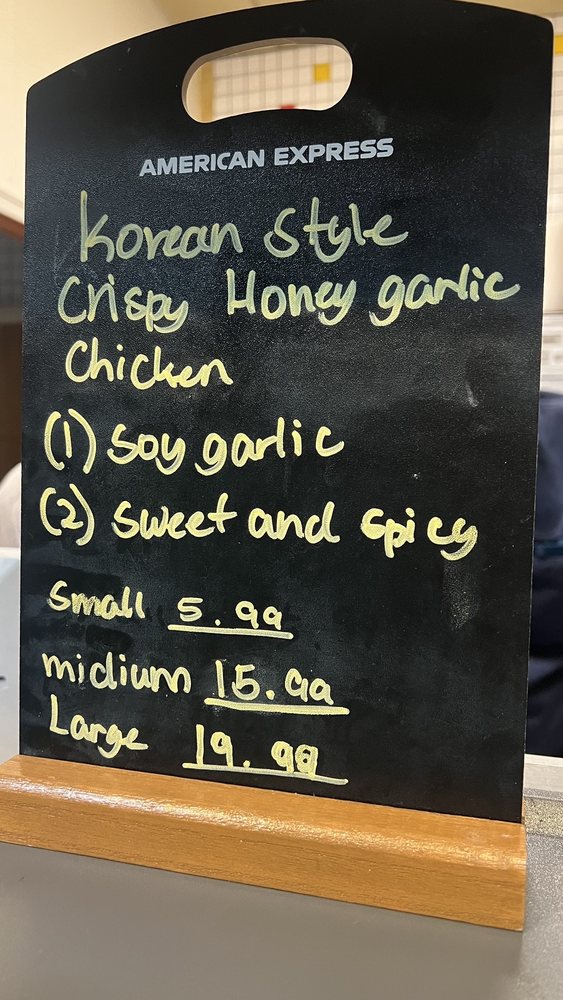 AMERICAN EXPRESS
Korean style
Crispy Honey garlic
Chicken
(1) Soy garlic
(2) Sweet and spicy
Small 5.99
midium 15.99
Large 19.99